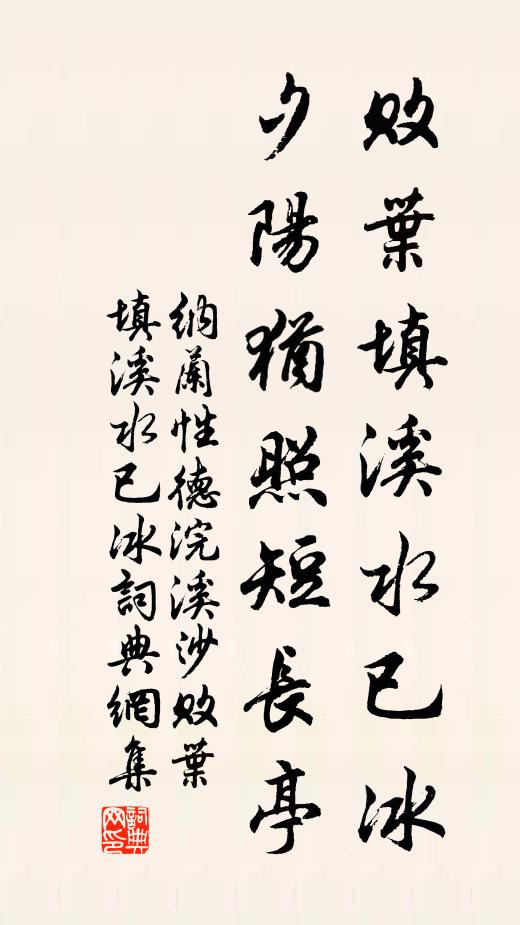 敗葉填溪水已冰
夕陽猶照短長亭
納蘭性德浣溪沙敗葉
填溪水已冰詞典網集
詞典
网印